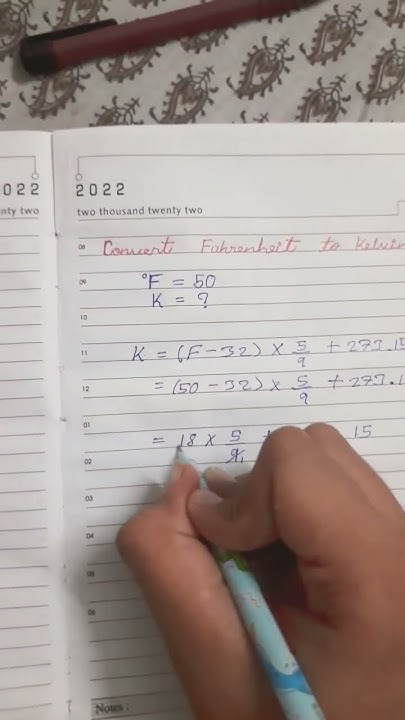 022
2022
nty two
two thousand twenty two
08 Convert Fahrenheit to Kelvin
09 °F = 50
K = ?
10
11 K = (F - 32) × 5/9 + 273.15
12 = (50 - 32) × 5/9 + 273.1
01
= 18 × 5/9 15
02
03
04
05
06
Notes :